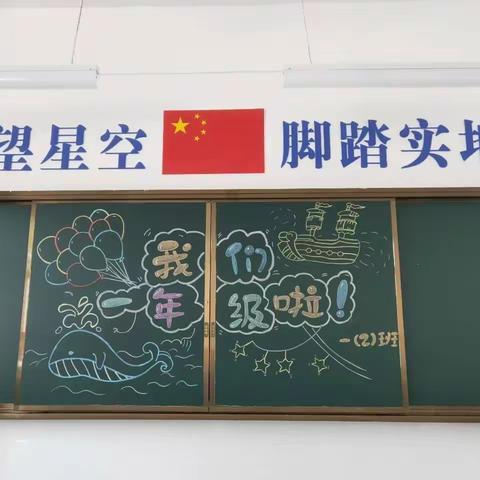 望星空 脚踏实地
我们
一年级啦!
一(2)班